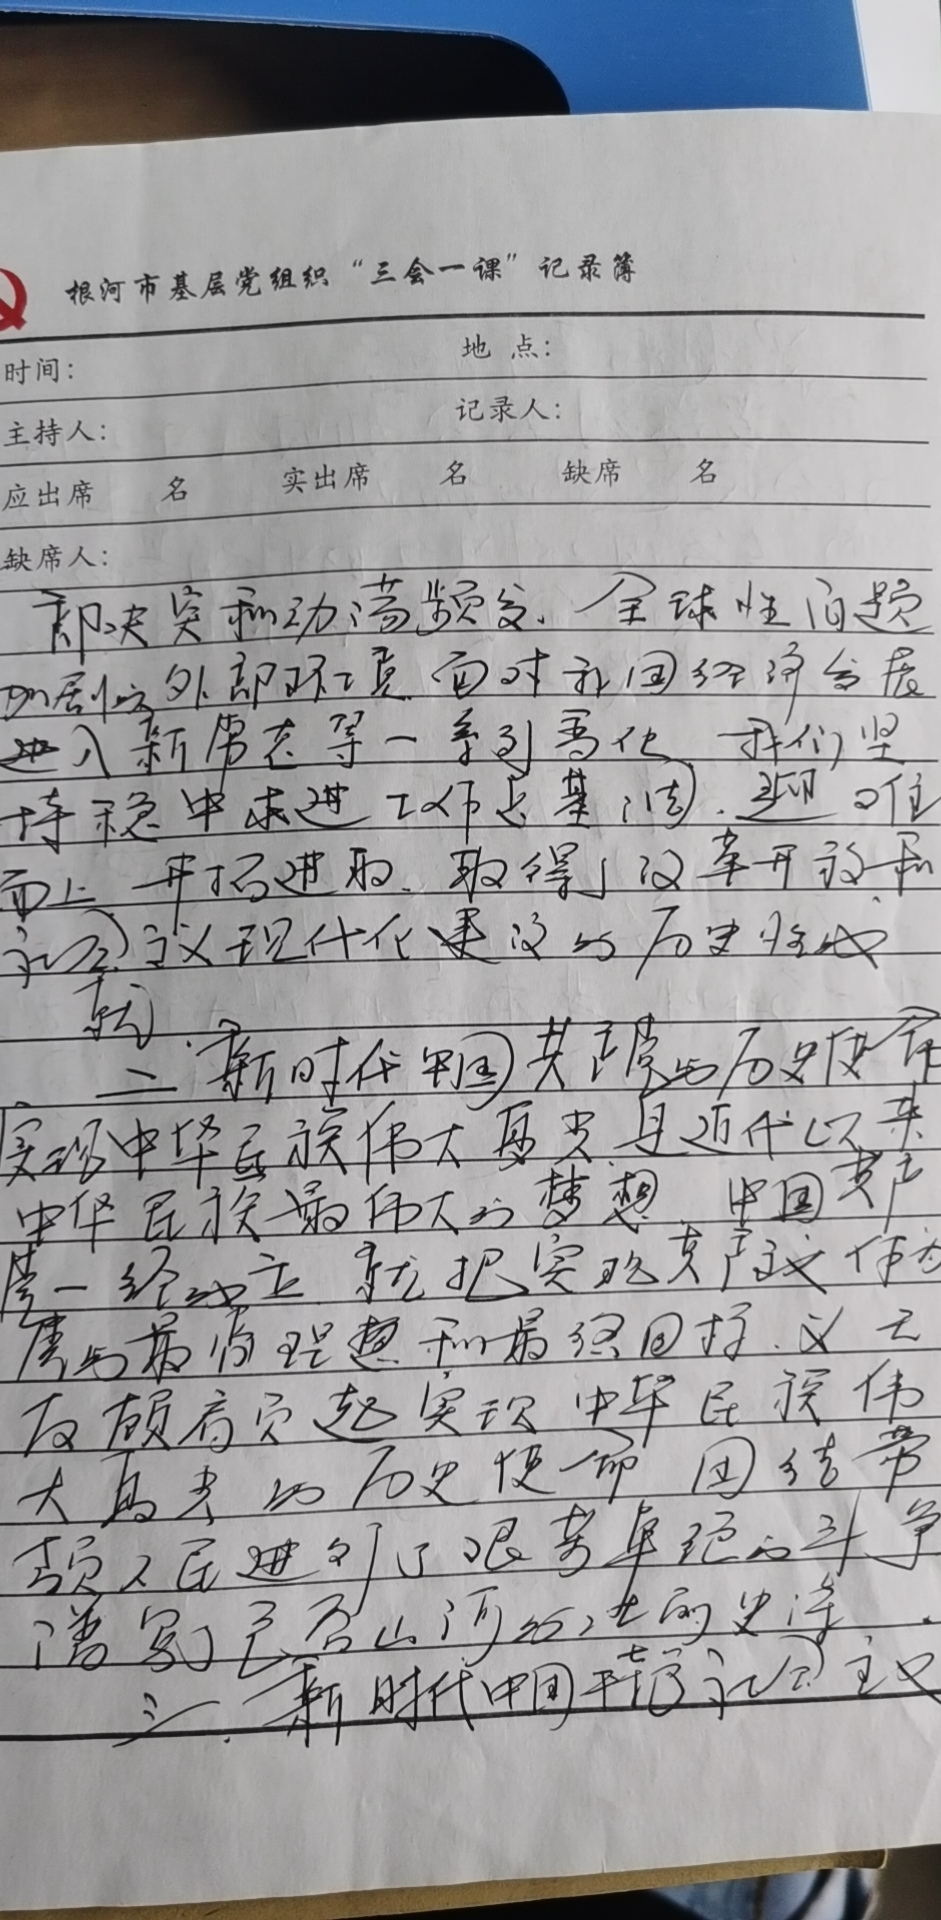 根河市基层党组织“三会一课”记录簿
时间: 地 点:
主持人: 记录人:
应出席 名 实出席 名 缺席 名
缺席人:
部冲突和动荡频发、全球性问题
加剧的外部环境 面对我国经济发展
进入新常态等一系列变化 我们坚
持稳中求进工作总基调、迎难
而上 开拓进取、取得了改革开放和
社会主义现代化建设的历史性成
就
二 新时代中国共产党的历史使命
实现中华民族伟大复兴是近代以来
中华民族最伟大的梦想、中国共产
党一经成立 就把实现共产主义作为
党的最高理想和最终目标、义无
反顾肩负起实现中华民族伟
大复兴的历史使命 团结带
领人民进行了艰苦卓绝的斗争
谱写了气吞山河的壮丽史诗.
三、新时代中国特色社会主义